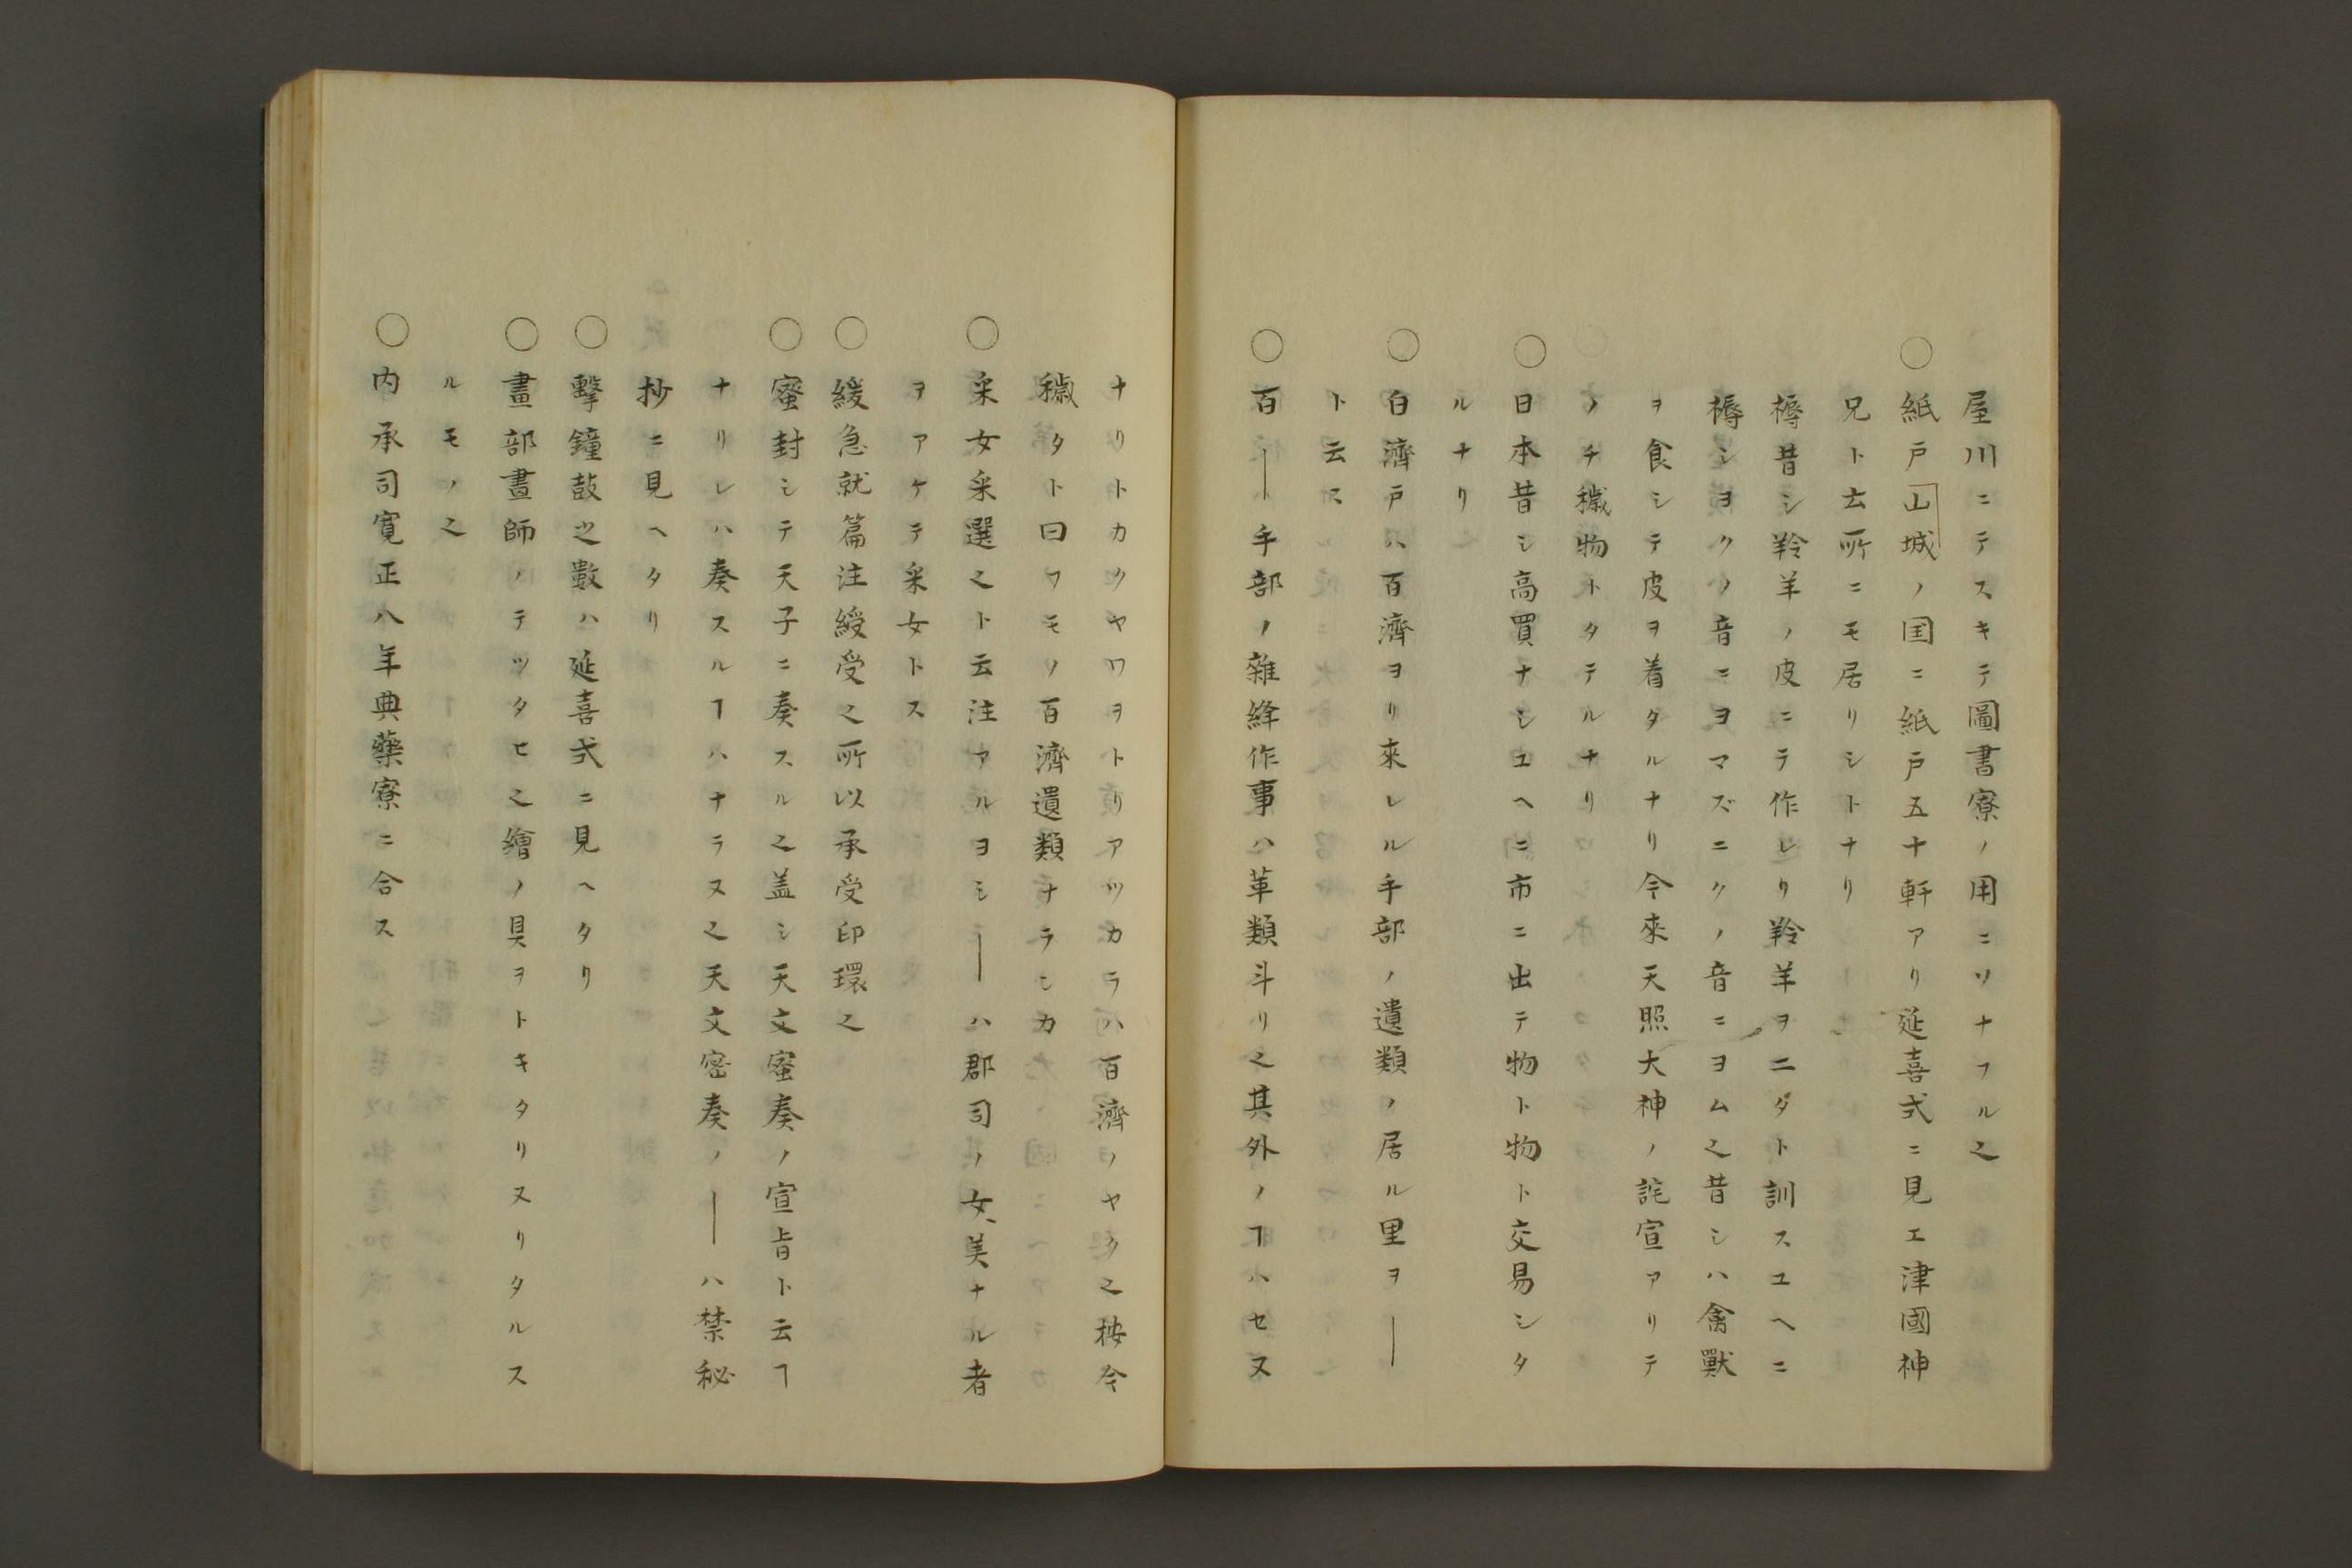 屋川ニテスキテ圖書寮ノ用ニソナフル之
○紙戸山城ノ国ニ紙戸五十軒アリ延喜式ニ見エ津國神
兄ト云所ニモ居リシトナリ
褥昔シ羚羊ノ皮ニテ作レリ羚羊ヲニダト訓スユヘニ
褥シヨクノ音ニヨマズニクノ音ニヨム之昔シハ禽獸
ヲ食シテ皮ヲ着タルナリ今來天照大神ノ詫宣アリテ
ノチ穢物トタテルナリ
○日本昔シ高買ナシユヘニ市ニ出テ物ト物ト交易シタ
ルナリ
○白濟戸ハ百濟ヨリ來レル手部ノ遺類ノ居ル里ヲ―
ト云ス
○百―手部ノ雜絳作事ハ革類斗リ之其外ノヿハセヌ
ナリトカクヤワヲトリアツカラハ百濟ノヤク之按今
穢タト曰フモソ百濟遺類ナラシカ
○采女采選之ト云注アルヨシ―ハ郡司ノ女、美ナル者
ヲアケテ采女トス
○緩急就篇注綬受之所以承受印環之
○蜜封シテ天子ニ奏スル之盖シ天文蜜奏ノ宣旨ト云ヿ
ナリレハ奏スルヿハナラヌ之天文密奏ノ―ハ禁秘
抄ニ見ヘタリ
○擊鐘鼓之數ハ延喜式ニ見ヘタリ
○畫部畫師ノテツタヒ之繪ノ具ヲトキタリヌリタルス
ルモノ之
○内承司寛正八年典藥寮ニ合ス